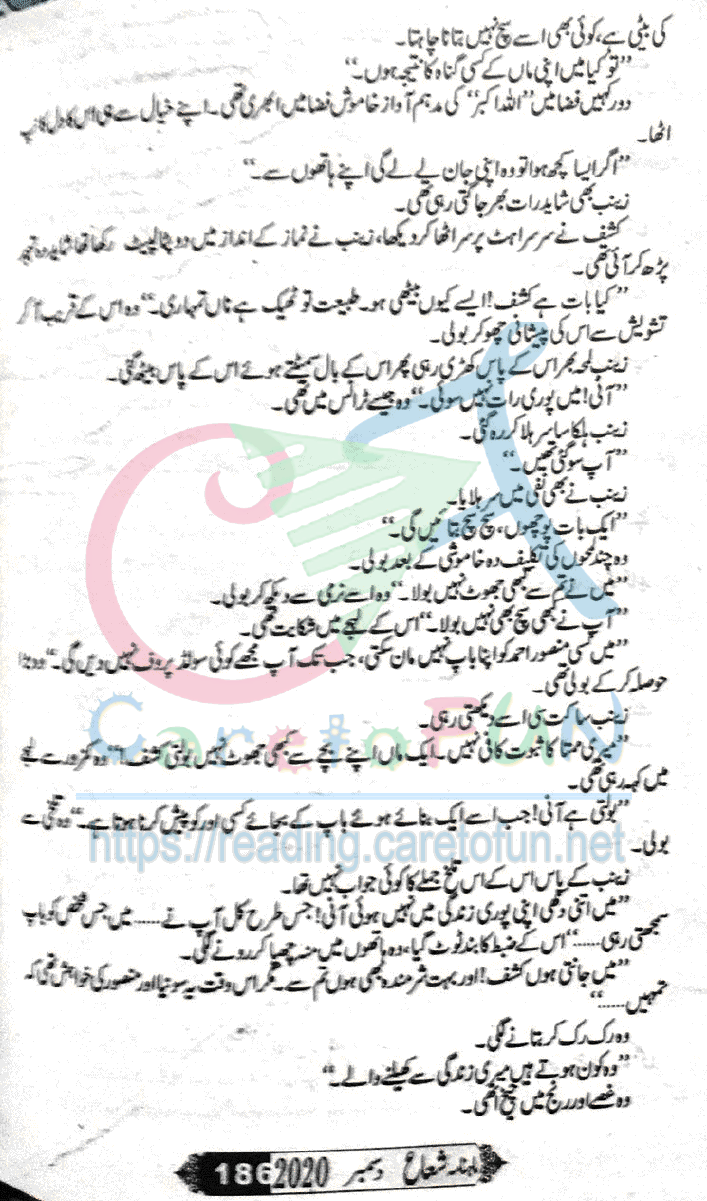 کی بیٹی ہے، کوئی بھی اسے سچ نہیں بتانا چاہتا۔
”تو کیا میں اپنی ماں کے کسی گناہ کا نتیجہ ہوں۔“
دور کہیں فضا میں ”اللہ اکبر“ کی مدہم آواز خاموش فضا میں ابھری تھی۔ اپنے خیال سے ہی اس کا دل کانپ
اٹھا۔
”اگر ایسا کچھ ہوا تو وہ اپنی جان لے لے گی اپنے ہاتھوں سے۔“
زینب بھی شاید رات بھر جاگتی رہی تھی۔
کشف نے سرسراہٹ پر سر اٹھا کر دیکھا، زینب نے نماز کے انداز میں دوپٹا لپیٹ رکھا تھا شاید وہ تہجد
پڑھ کر آئی تھی۔
”کیا بات ہے کشف! ایسے کیوں بیٹھی ہو۔ طبیعت تو ٹھیک ہے ناں تمہاری۔“ وہ اس کے قریب آ کر
تشویش سے اس کی پیشانی چھو کر بولی۔
زینب لمحہ بھر اس کے پاس کھڑی رہی پھر اس کے بال سمیٹتے ہوئے اس کے پاس بیٹھ گئی۔
”آنی! میں پوری رات نہیں سوئی۔“ وہ جیسے ٹرانس میں تھی۔
زینب ہلکا سا سر ہلا کر رہ گئی۔
”آپ سو گئی تھیں۔“
زینب نے بھی نفی میں سر ہلایا۔
”ایک بات پوچھوں، سچ سچ بتائیں گی۔“
وہ چند لمحوں کی تکلیف دہ خاموشی کے بعد بولی۔
”میں نے تم سے کبھی جھوٹ نہیں بولا۔“ وہ اسے نرمی سے دیکھ کر بولی۔
”آپ نے کبھی سچ بھی نہیں بولا۔“ اس کے لہجے میں شکایت تھی۔
”میں کسی منصور احمد کو اپنا باپ نہیں مان سکتی، جب تک آپ مجھے کوئی سولڈ پروف نہیں دیں گی۔“ وہ بڑا
حوصلہ کر کے بولی تھی۔
زینب ساکت سی اسے دیکھتی رہی۔
”میری ممتا کا ثبوت کافی نہیں۔ ایک ماں اپنے بچے سے کبھی جھوٹ نہیں بولتی کشف!“ وہ کمزور سے لہجے
میں کہہ رہی تھی۔
”بولتی ہے آنی! جب اسے ایک بنائے ہوئے باپ کے بجائے کسی اور کو پیش کرنا ہوتا ہے۔“ وہ تلخی سے
بولی۔
زینب کے پاس اس کے اس تلخ جملے کا کوئی جواب نہیں تھا۔
”میں اتنی دکھی اپنی پوری زندگی میں نہیں ہوئی آنی! جس طرح کل آپ نے...... میں جس شخص کو باپ
سمجھتی رہی......“ اس کے ضبط کا بند ٹوٹ گیا، وہ ہاتھوں میں منہ چھپا کر رونے لگی۔
”میں جانتی ہوں کشف! اور بہت شرمندہ بھی ہوں تم سے۔ مگر اس وقت یہ سونیا اور منصور کی خواہش تھی کہ
تمہیں......“
وہ رک رک کر بتانے لگی۔
”وہ کون ہوتے ہیں میری زندگی سے کھیلنے والے۔“
وہ غصے اور رنج میں چیخ اٹھی۔
CaretoFUN
https://reading.caretofun.net
ماہنامہ شعاع دسمبر 2020 186